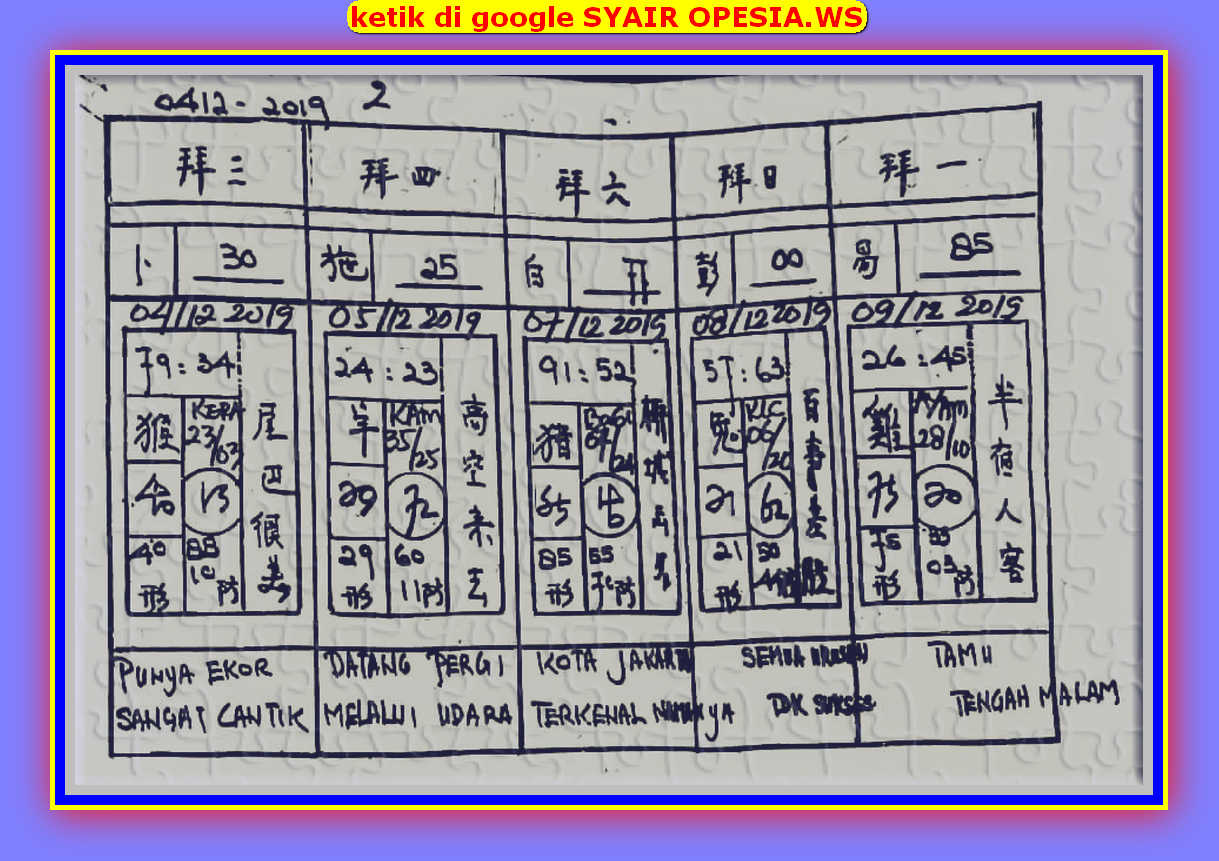 ketik di google SYAIR OPESIA.WS
0412-2019 2
拜三 拜四 拜六 拜日 拜一
卜 30 施 25 自 彭 00 85
04/12 2019 05/12 2019 07/12 2019 08/12 2019 09/12 2019
79:34 24:23 91:52 57:63 26:45
猴 KERA 23/63
尾巴很美
40 13
40 88
形 10 防
羊 KAM 35/25
高空来去
29 72
29 60
形 11 防
猪
65
85 55
形 防
兎 KLC 06/20
百事
21 62
21 50
形
雞 AYAM 28/10
半夜人客
75 20
75
形 03 防
PUNYA EKOR
SANGAT CANTIK
DATANG PERGI
MELALUI UDARA
KOTA JAKARTA
TERKENAL NAMANYA
SEMUA URUSAN
TDK SUKSES
TAMU
TENGAH MALAM